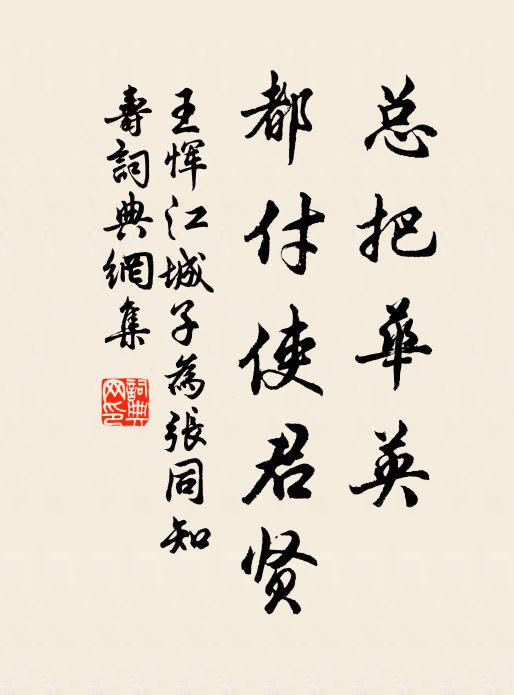 总把華英
都付使君贤
王恽江城子為張同知
壽詞典網集
詞典网印